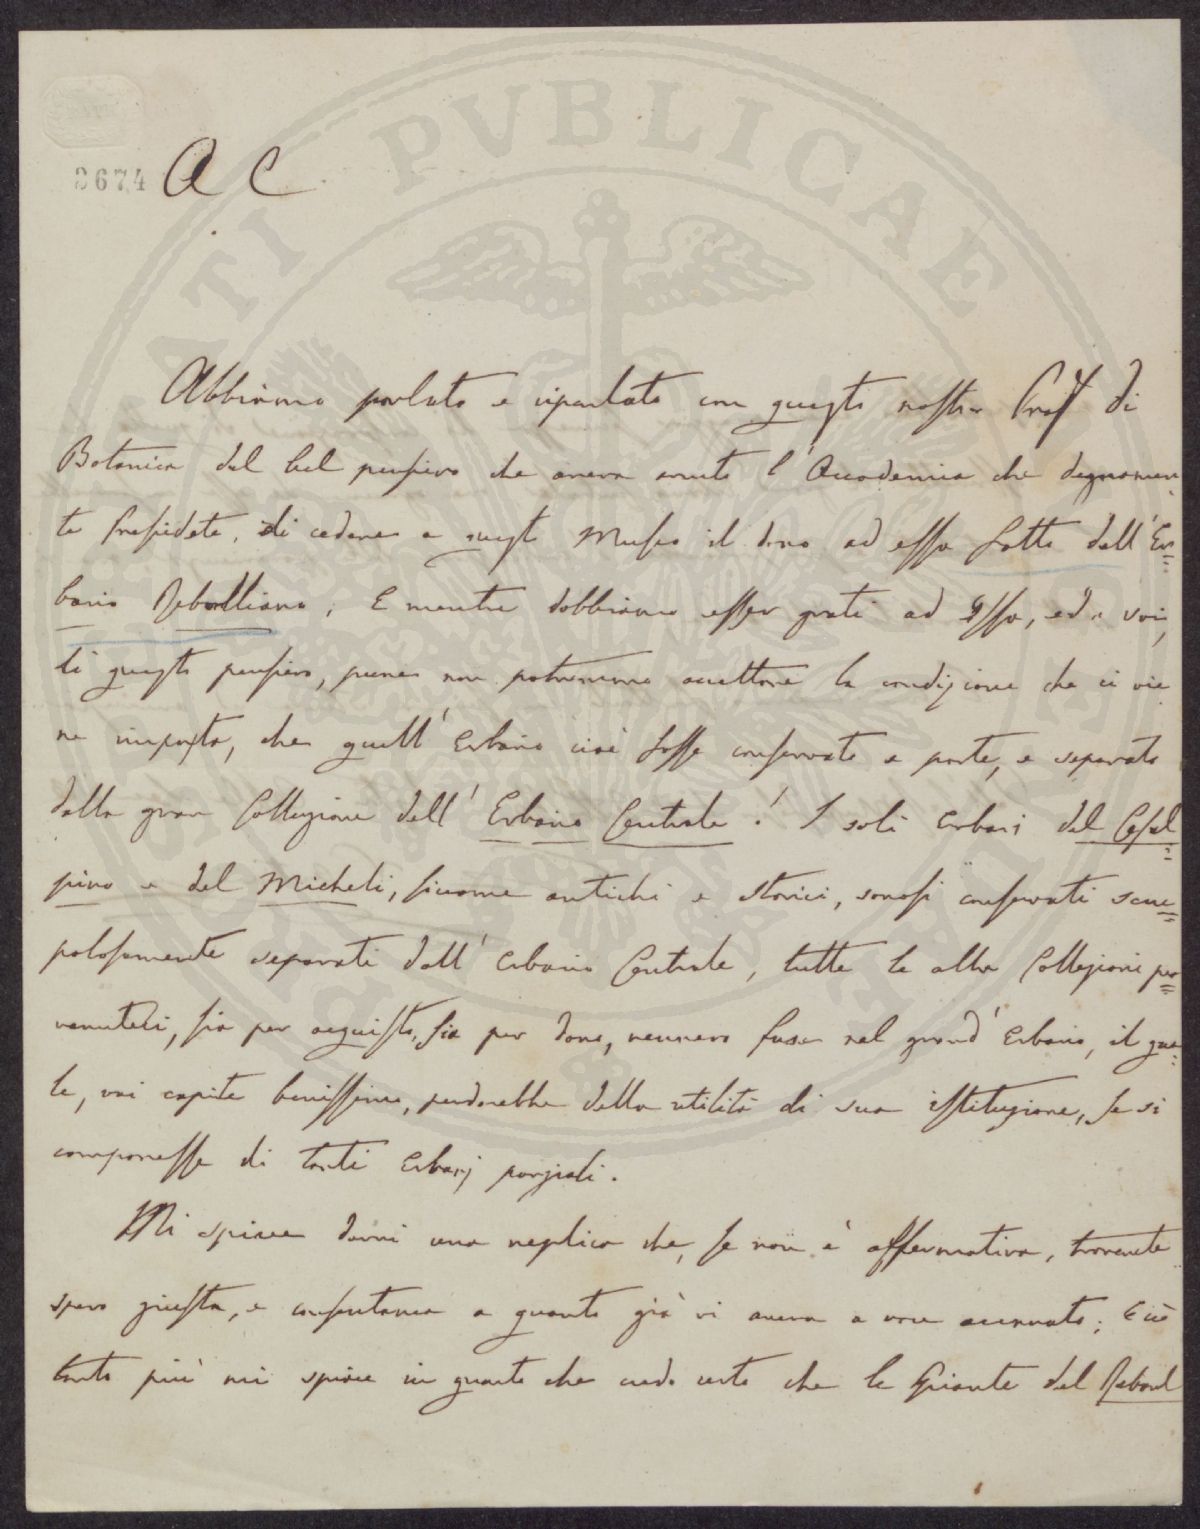 PVBLICAE
3674 A C
Abbiamo parlato e riparlato con questo nostro Prof di
Botanica del bel pensiero che aveva avuto l'Accademia che degnamen-
te Presidete, di cedere a questo Museo il dono ad essa fatto dell'Er=
bario Reboulliano; E mentre dobbiamo esser grati ad Essa, ed a voi,
di questo pensiero, pure non potremmo accettare la condizione che ci vie
ne imposta, che quell'Erbario cioè fosse conservato a parte, e separato
dalla gran Collezione dell'Erbario Centrale! I soli Erbari del Cesal=
pino e del Micheli, siccome antichi e storici, sonosi conservati scru=
polosamente separati dall'Erbario Centrale, tutte le altre Collezioni per=
venuteci, sia per acquisto, sia per dono, vennero fuse nel grand'Erbario, il qua=
le, voi capite benissimo, perderebbe della utilità di sua istituzione, se si
componesse di tanti Erbarj parziali.
Mi spiace darvi una replica che, se non è affermativa, troverete
spero giusta, e consentanea a quanto già vi aveva a voce accennato; E ciò
tanto più mi spiace in quanto che credo certo che le Piante del Reboul